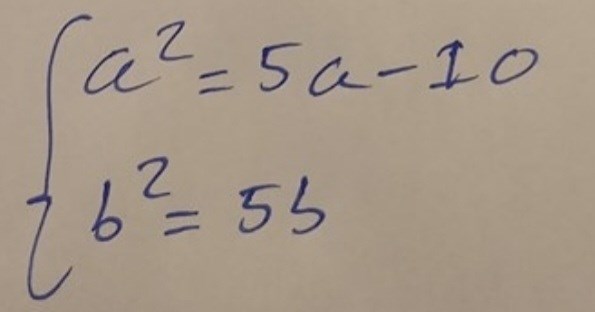 a² = 5a - 10
b² = 5b